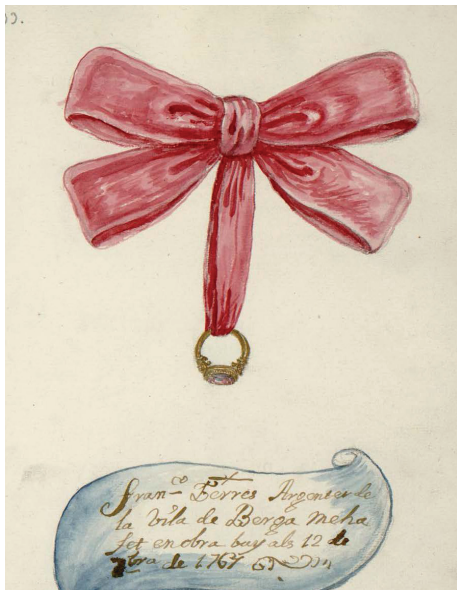 Fran.co Ferres Argenter de
la vila de Berga meha
fet en obra buy als 12 de
7bra de 1767